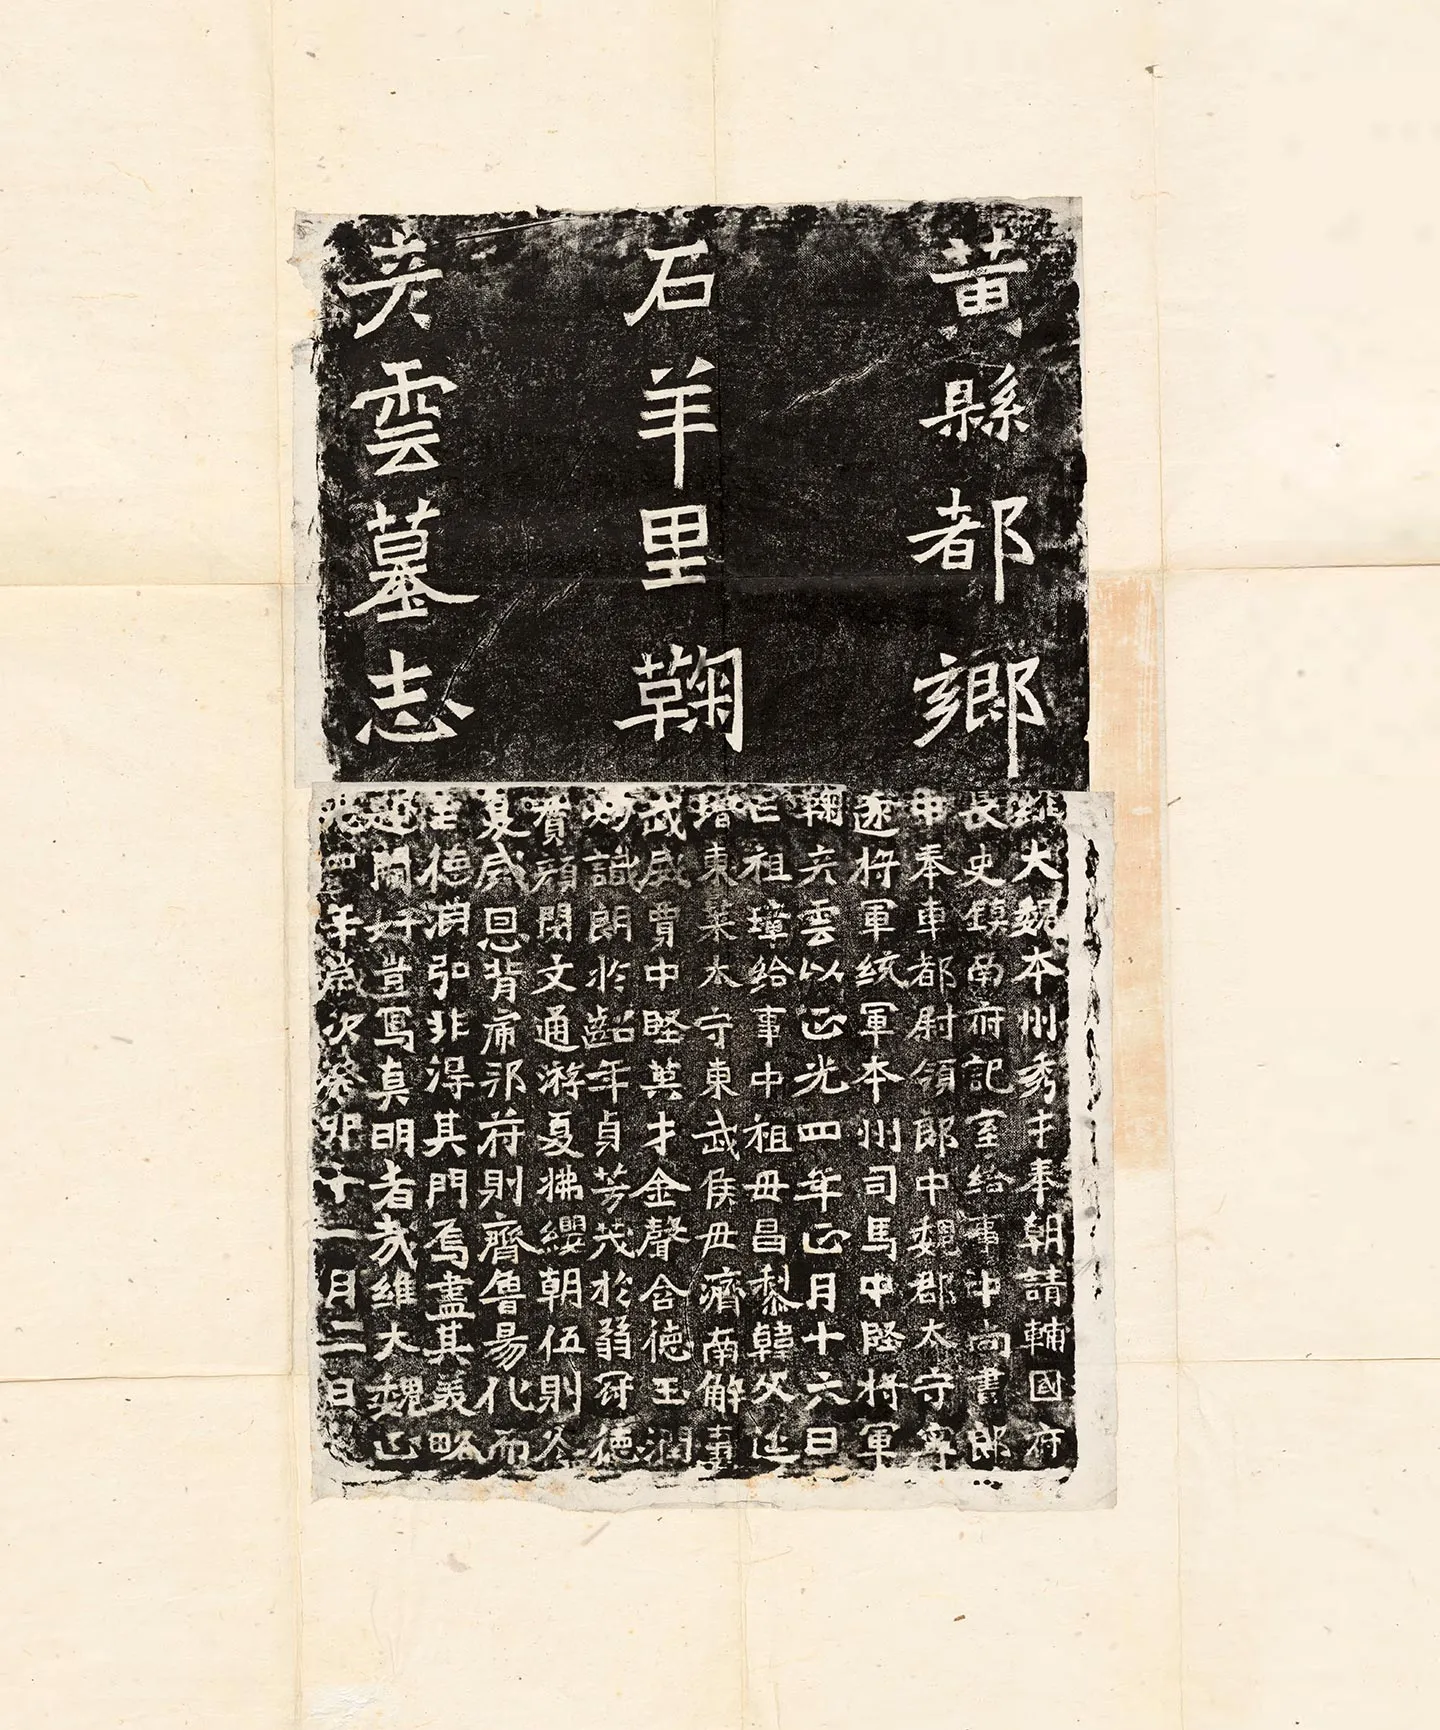 黃縣都鄉
石羊里鞠
彦雲墓志
維大魏本州秀才奉朝請輔國府
長史鎮南府記室給事中尚書郎
中奉車都尉領郎中魏郡太守寧
遠将軍統軍本州司馬中堅将軍
鞠彦雲以正光四年正月十六日
亡祖璋給事中祖母昌黎韓父延
增東萊太守東武侯母濟南解
武威賈中堅英才金聲含德玉潤
妙識朗於齠年貞芳茂於弱冠德
賓顔閔文通游夏拂纓朝伍則
夏威恩背虎邪符則齊魯易化而
至德淵弘非得其門焉盡其美略
述聞好豈寫真明者哉維大魏正
光四年歲次癸卯十一月二日